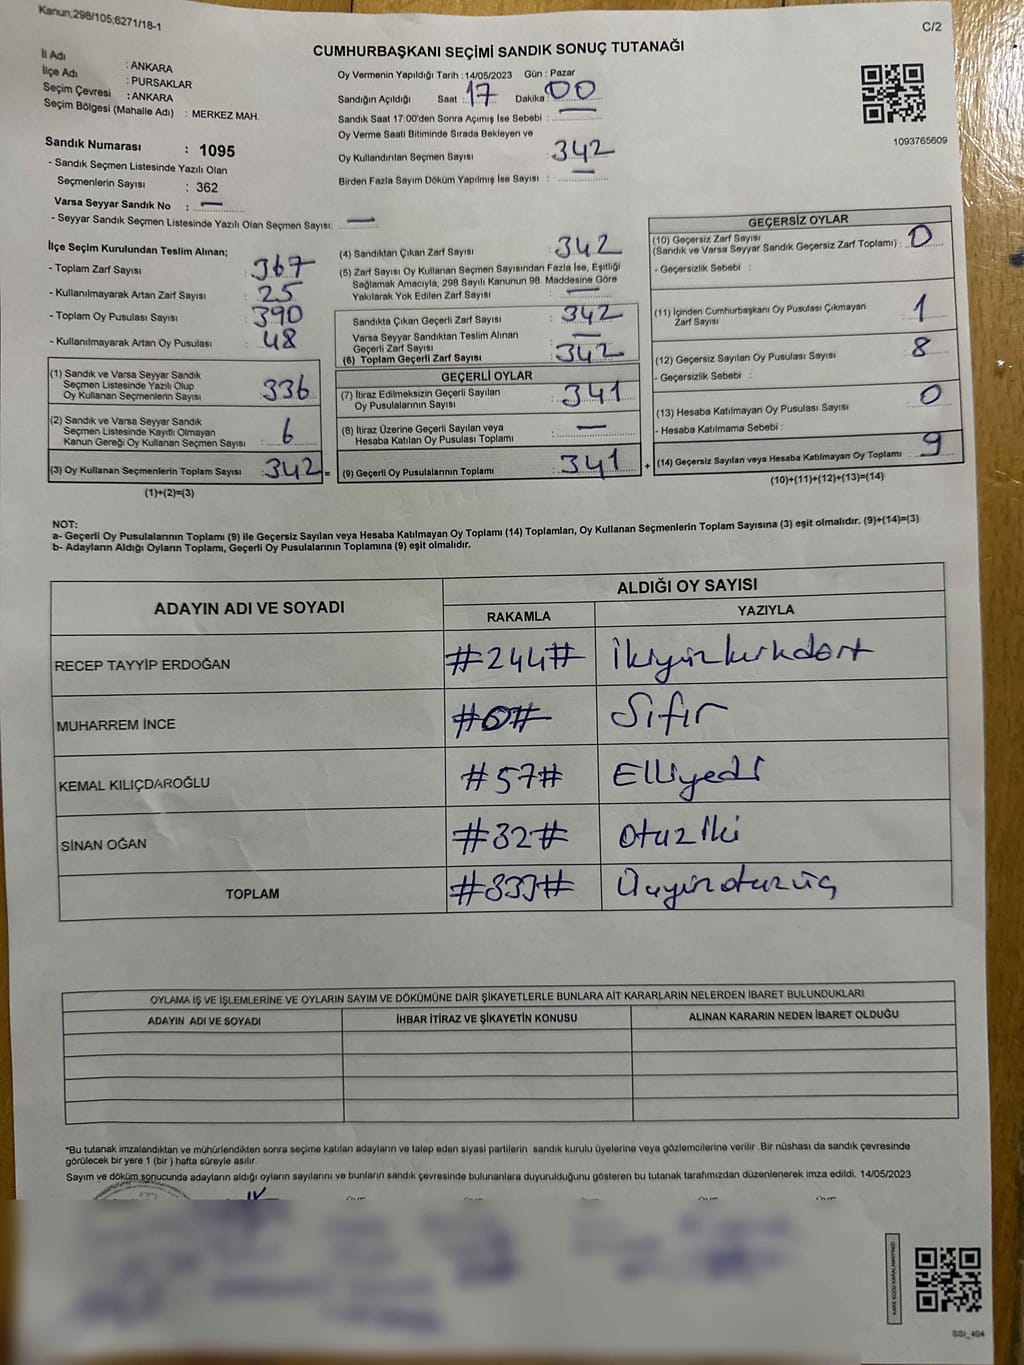 Kanun;298/105;6271/18-1
C/2
CUMHURBAŞKANI SEÇİMİ SANDIK SONUÇ TUTANAĞI
İl Adı : ANKARA
İlçe Adı : PURSAKLAR
Seçim Çevresi : ANKARA
Seçim Bölgesi (Mahalle Adı) : MERKEZ MAH.
Oy Vermenin Yapıldığı Tarih : 14/05/2023 Gün : Pazar
Sandığın Açıldığı Saat : 17 Dakika : 00
Sandık Saat 17:00'den Sonra Açımış İse Sebebi : —
Oy Verme Saati Bitiminde Sırada Bekleyen ve
Oy Kullandırılan Seçmen Sayısı : 342
Birden Fazla Sayım Döküm Yapılmış İse Sayısı : —
1093765609
Sandık Numarası : 1095
- Sandık Seçmen Listesinde Yazılı Olan
Seçmenlerin Sayısı : 362
Varsa Seyyar Sandık No : —
- Seyyar Sandık Seçmen Listesinde Yazılı Olan Seçmen Sayısı: —
İlçe Seçim Kurulundan Teslim Alınan;
- Toplam Zarf Sayısı : 367
- Kullanılmayarak Artan Zarf Sayısı : 25
- Toplam Oy Pusulası Sayısı : 390
- Kullanılmayarak Artan Oy Pusulası : 48
(1) Sandık ve Varsa Seyyar Sandık
Seçmen Listesinde Yazılı Olup
Oy Kullanan Seçmenlerin Sayısı : 336
(2) Sandık ve Varsa Seyyar Sandık
Seçmen Listesinde Kayıtlı Olmayan
Kanun Gereği Oy Kullanan Seçmen Sayısı : 6
(3) Oy Kullanan Seçmenlerin Toplam Sayısı : 342 =
(1)+(2)=(3)
(4) Sandıktan Çıkan Zarf Sayısı : 342
(5) Zarf Sayısı Oy Kullanan Seçmen Sayısından Fazla İse, Eşitliği
Sağlamak Amacıyla, 298 Sayılı Kanunun 98. Maddesine Göre
Yakılarak Yok Edilen Zarf Sayısı : —
Sandıkta Çıkan Geçerli Zarf Sayısı : 342
Varsa Seyyar Sandıktan Teslim Alınan
Geçerli Zarf Sayısı : —
(6) Toplam Geçerli Zarf Sayısı : 342
GEÇERLİ OYLAR
(7) İtiraz Edilmeksizin Geçerli Sayılan
Oy Pusulalarının Sayısı : 341
(8) İtiraz Üzerine Geçerli Sayılan veya
Hesaba Katılan Oy Pusulası Toplamı : —
(9) Geçerli Oy Pusulalarının Toplamı : 341 +
GEÇERSİZ OYLAR
(10) Geçersiz Zarf Sayısı
(Sandık ve Varsa Seyyar Sandık Geçersiz Zarf Toplamı) : 0
- Geçersizlik Sebebi :
(11) İçinden Cumhurbaşkanı Oy Pusulası Çıkmayan
Zarf Sayısı : 1
(12) Geçersiz Sayılan Oy Pusulası Sayısı : 8
- Geçersizlik Sebebi :
(13) Hesaba Katılmayan Oy Pusulası Sayısı : 0
- Hesaba Katılmama Sebebi :
(14) Geçersiz Sayılan veya Hesaba Katılmayan Oy Toplamı : 9
(10)+(11)+(12)+(13)=(14)
NOT:
a- Geçerli Oy Pusulalarının Toplamı (9) ile Geçersiz Sayılan veya Hesaba Katılmayan Oy Toplamı (14) Toplamları, Oy Kullanan Seçmenlerin Toplam Sayısına (3) eşit olmalıdır. (9)+(14)=(3)
b- Adayların Aldığı Oyların Toplamı, Geçerli Oy Pusulalarının Toplamına (9) eşit olmalıdır.
ADAYIN ADI VE SOYADI ALDIĞI OY SAYISI
RAKAMLA YAZIYLA
RECEP TAYYİP ERDOĞAN #244# İkiyüzkırkdört
MUHARREM İNCE #0# Sıfır
KEMAL KILIÇDAROĞLU #57# Elliyedi
SİNAN OĞAN #32# otuziki
TOPLAM #333# Üçyüzotuzüç
OYLAMA İŞ VE İŞLEMLERİNE VE OYLARIN SAYIM VE DÖKÜMÜNE DAİR ŞİKAYETLERLE BUNLARA AİT KARARLARIN NELERDEN İBARET BULUNDUKLARI
ADAYIN ADI VE SOYADI İHBAR İTİRAZ VE ŞİKAYETİN KONUSU ALINAN KARARIN NEDEN İBARET OLDUĞU
*Bu tutanak imzalandıktan ve mühürlendikten sonra seçime katılan adayların ve talep eden siyasi partilerin sandık kurulu üyelerine veya gözlemcilerine verilir. Bir nüshası da sandık çevresinde
görülecek bir yere 1 (bir ) hafta süreyle asılır.
Sayım ve döküm sonucunda adayların aldığı oyların sayılarını ve bunların sandık çevresinde bulunanlara duyurulduğunu gösteren bu tutanak tarafımızdan düzenlenerek imza edildi. 14/05/2023
KARE KODU KARALAMAYINIZ!
SSI_404